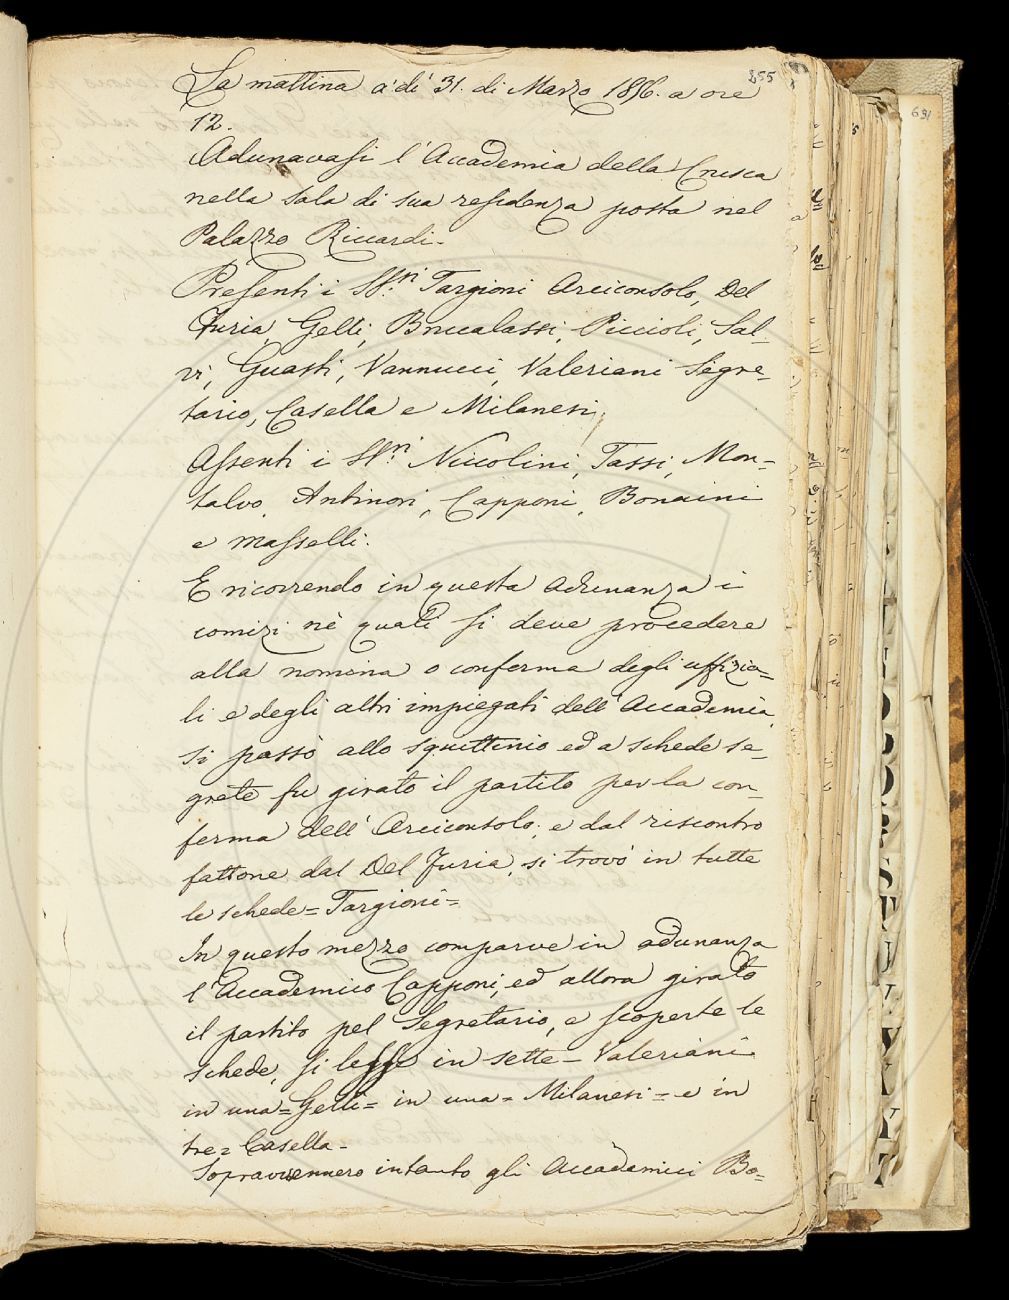 355
La mattina a' dì 31. di Marzo 1856. a ore
12.
Adunavasi l'Accademia della Crusca
nella sala di sua residenza posta nel
Palazzo Riccardi.
Presenti i SS.ri Targioni Arciconsolo, Del
Furia, Gelli, Brucalassi, Piccioli, Sal=
vi, Guasti, Vannucci, Valeriani Segre=
tario, Casella e Milanesi,
Assenti i SS.ri Niccolini, Tassi, Mon=
talvo, Antinori, Capponi, Bonaini
e Masselli.
E ricorrendo in questa adunanza i
comizi nè quali si deve procedere
alla nomina o conferma degli uffizia=
li e degli altri impiegati dell'Accademia,
si passò allo squittinio ed a schede se=
grete fu girato il partito per la con=
ferma dell'Arciconsolo; e dal riscontro
fattone dal Del Furia, si trovò in tutte
le schede = Targioni =
In questo mezzo comparve in adunanza
l'Accademico Capponi, ed allora girato
il partito pel Segretario, e scoperte le
schede, si lesse in sette = Valeriani =
in una = Gelli = in una = Milanesi = e in
tre = Casella =
Sopravvennero intanto gli Accademici Bo=
691